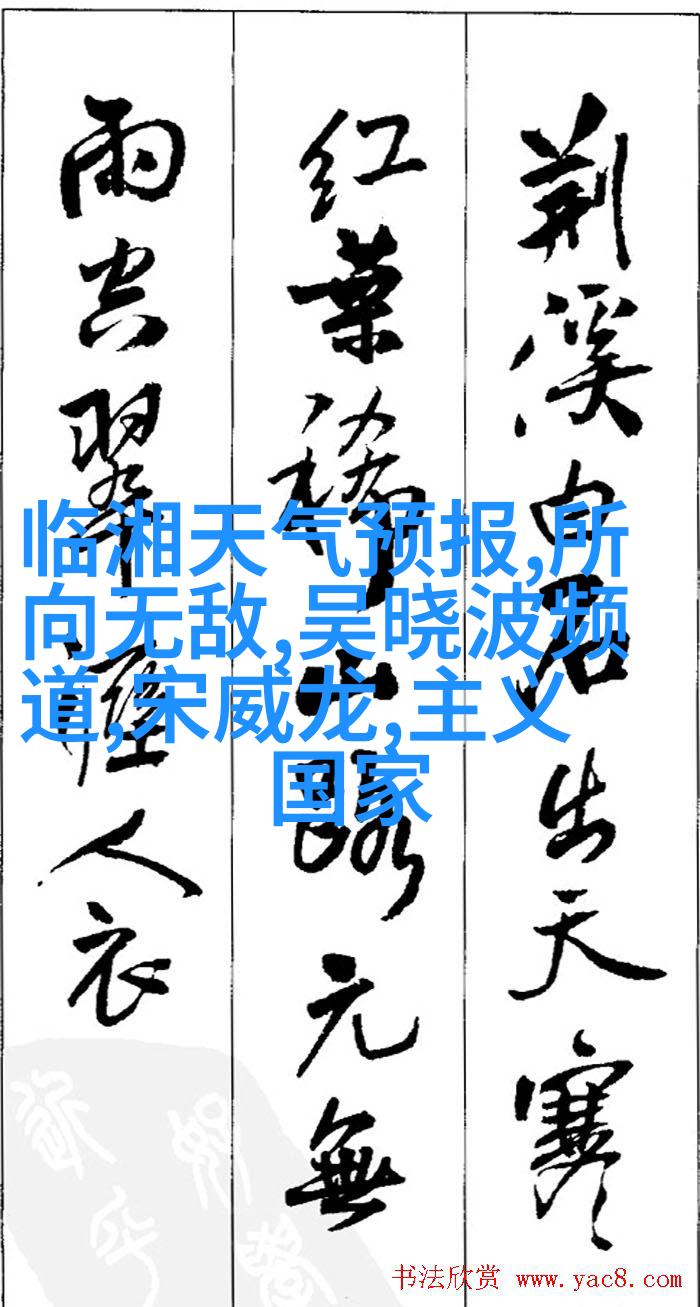 荆溪白石出天寒
红葉稀山路元無
雨空翠溼人衣
临湘天气预报,所
向无敌,吴晓波频
道,宋威龙,主义
国家
书法欣赏 www.yac8.com